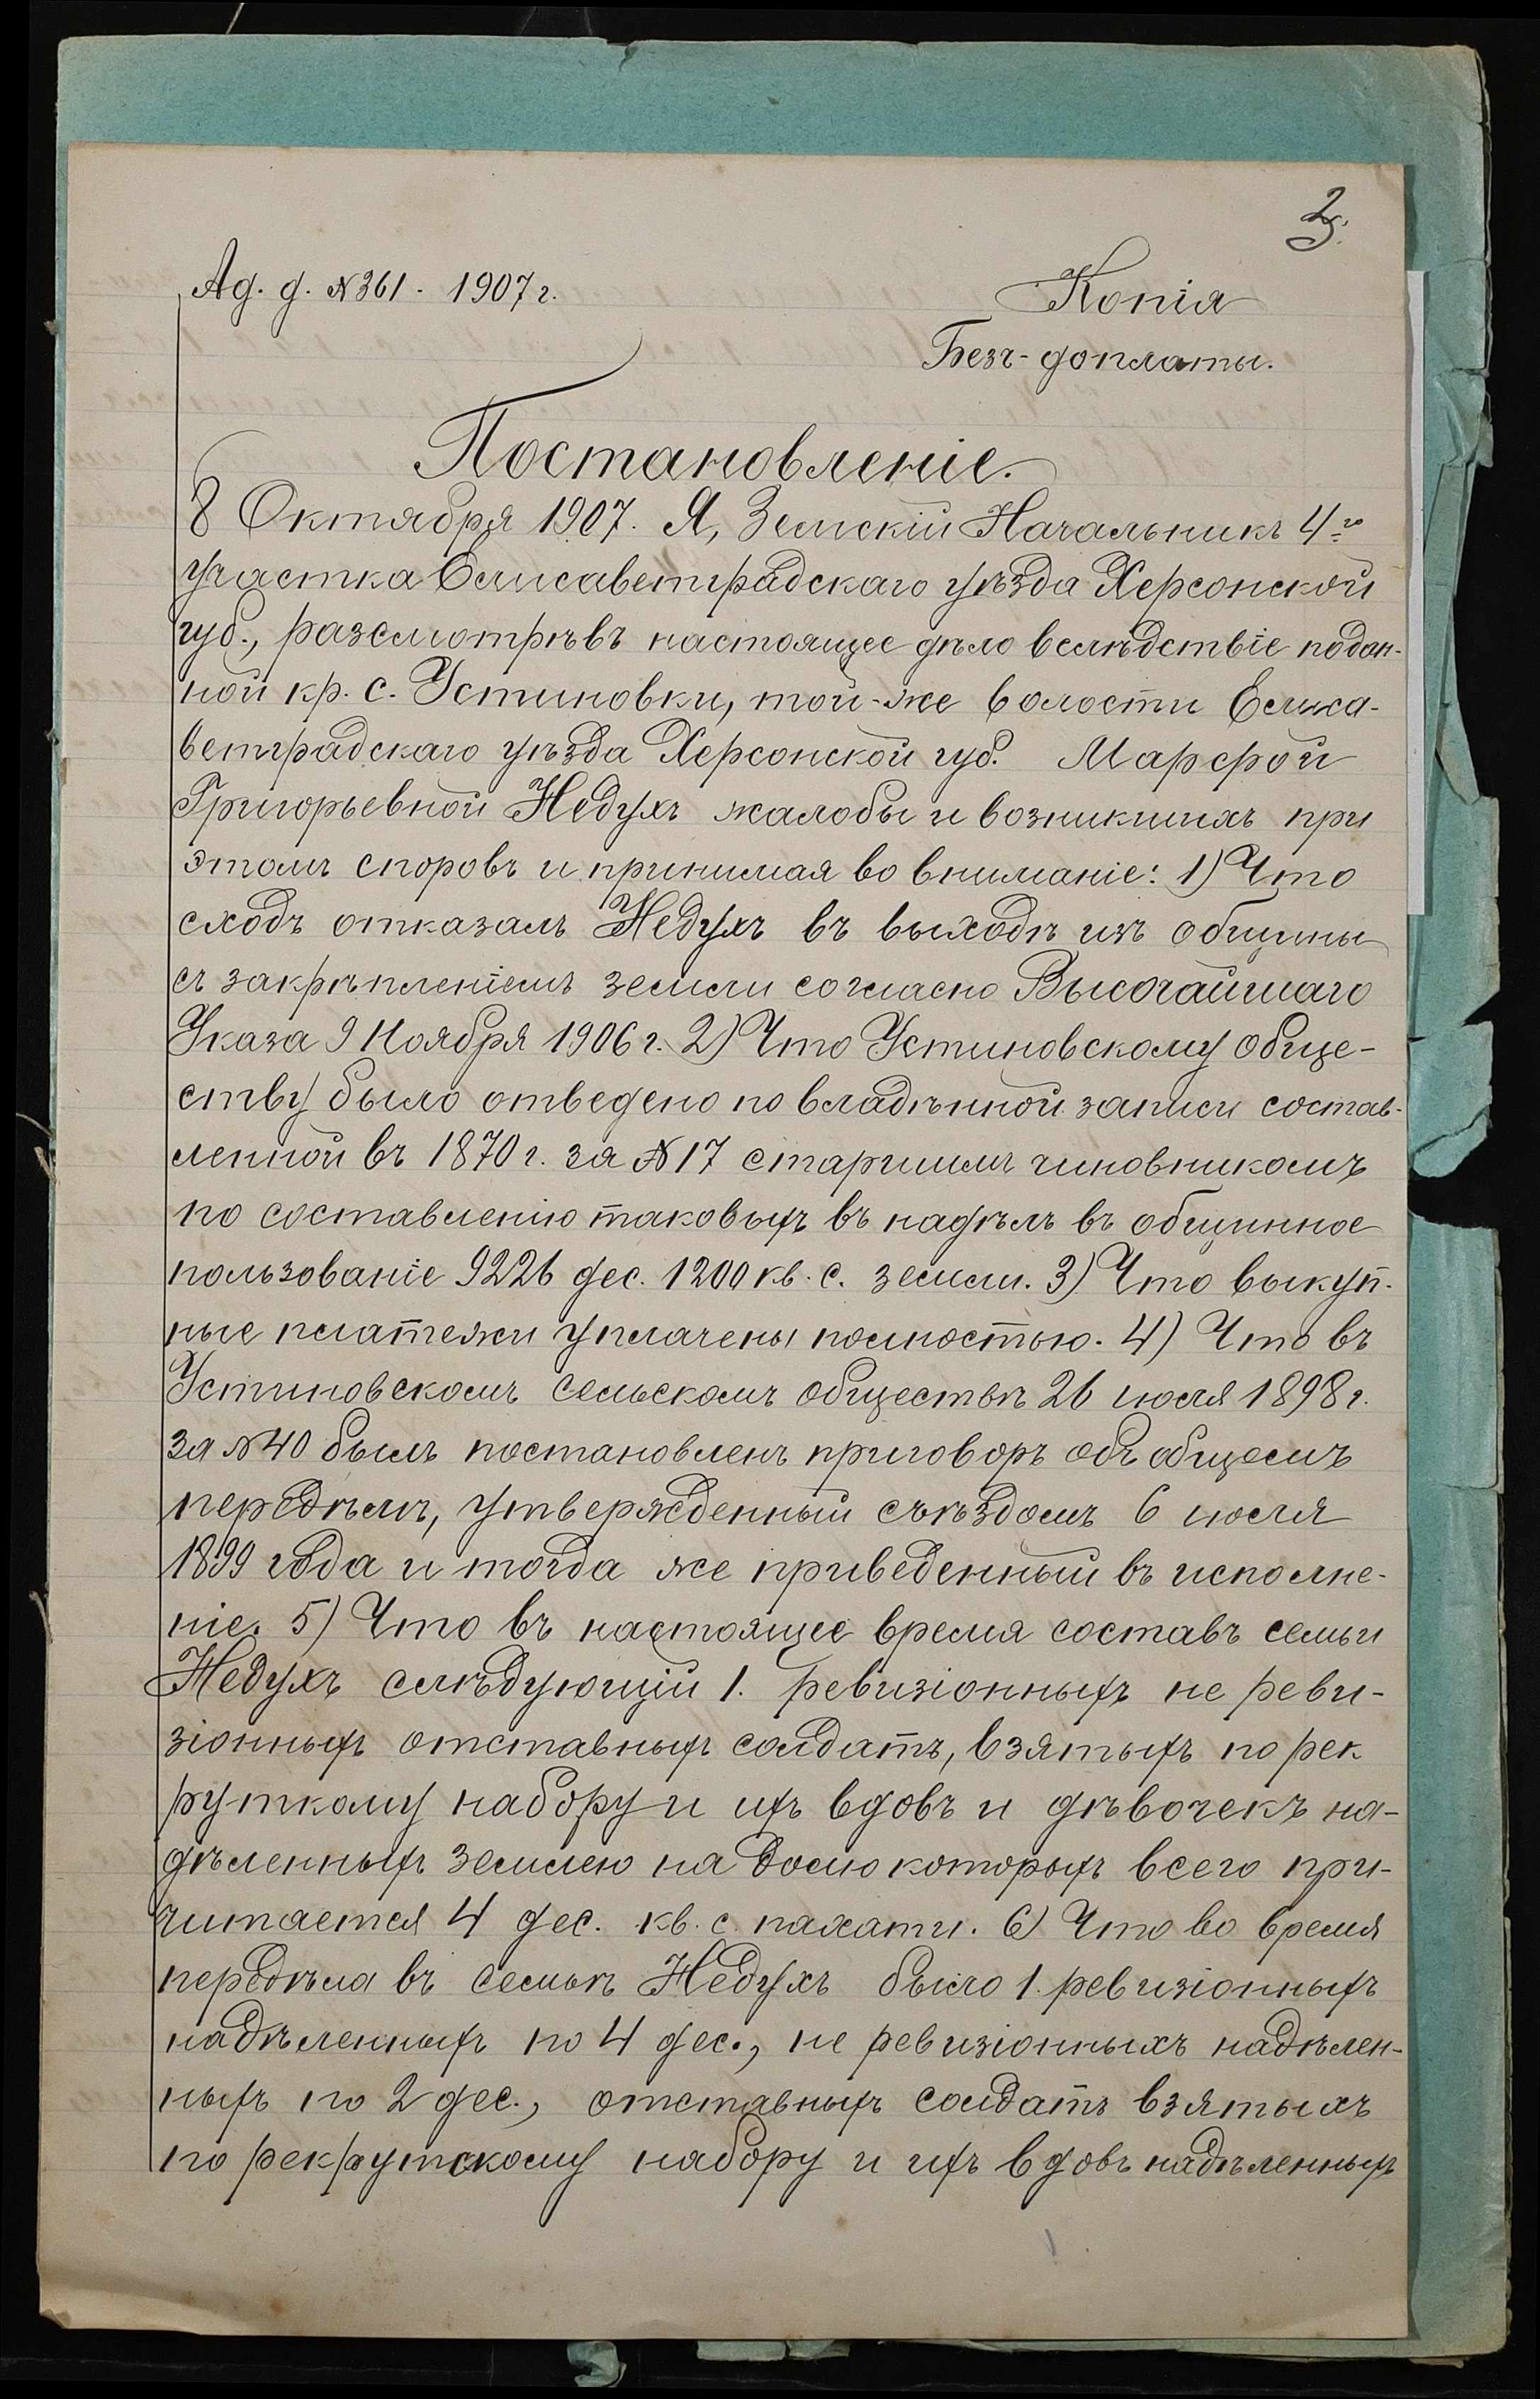 Ад. д. №361. 1907 г.
Копія
Безъ-доплаты.
Постановленіе.
8 Октября 1907. Я, Земскій Начальникъ 4го
участка Елисаветградскаго уѣзда Херсонской
губ., разсмотрѣвъ настоящее дѣло вслѣдствіе подан-
ной кр. с. Устиновки, той-же волости Елиса-
ветградскаго уѣзда Херсонской губ. Марфой
Григорьевной Недухъ жалобы и возникшихъ при
этомъ споровъ и принимая во вниманіе: 1) Что
сходъ отказалъ Недухъ въ выходѣ изъ общины
съ закрѣпленіемъ земли согласно Высочайшаго
Указа 9 Ноября 1906 г. 2) Что Устиновскому обще-
ству было отведено по владѣнной записи состав-
ленной въ 1870 г. за №17 старшимъ чиновникомъ
по составленію таковыхъ въ надѣлъ въ общинное
пользованіе 9226 дес. 1200 кв. с. земли. 3) Что выкуп-
ные платежи уплачены полностью. 4) Что въ
Устиновскомъ сельскомъ обществѣ 26 іюля 1898 г.
за №40 былъ постановленъ приговоръ объ общемъ
передѣлѣ, утвержденный съѣздомъ 6 іюля
1899 года и тогда же приведенный въ исполне-
ніе. 5) Что въ настоящее время составъ семьи
Недухъ слѣдующій 1. ревизіонныхъ не реви-
зіонныхъ отставныхъ солдатъ, взятыхъ по рек
руткому набору и ихъ вдовъ и дѣвочекъ на-
дѣленныхъ землею на долю которыхъ всего при-
читается 4 дес. кв. с. пахати. 6) Что во время
передѣла въ семьѣ Недухъ было 1. ревизіонныхъ
надѣленныхъ по 4 дес., не ревизіонныхъ надѣлен-
ныхъ по 2 дес., отставныхъ солдатъ взятыхъ
по рекрутскому набору и ихъ вдовъ надѣленныхъ